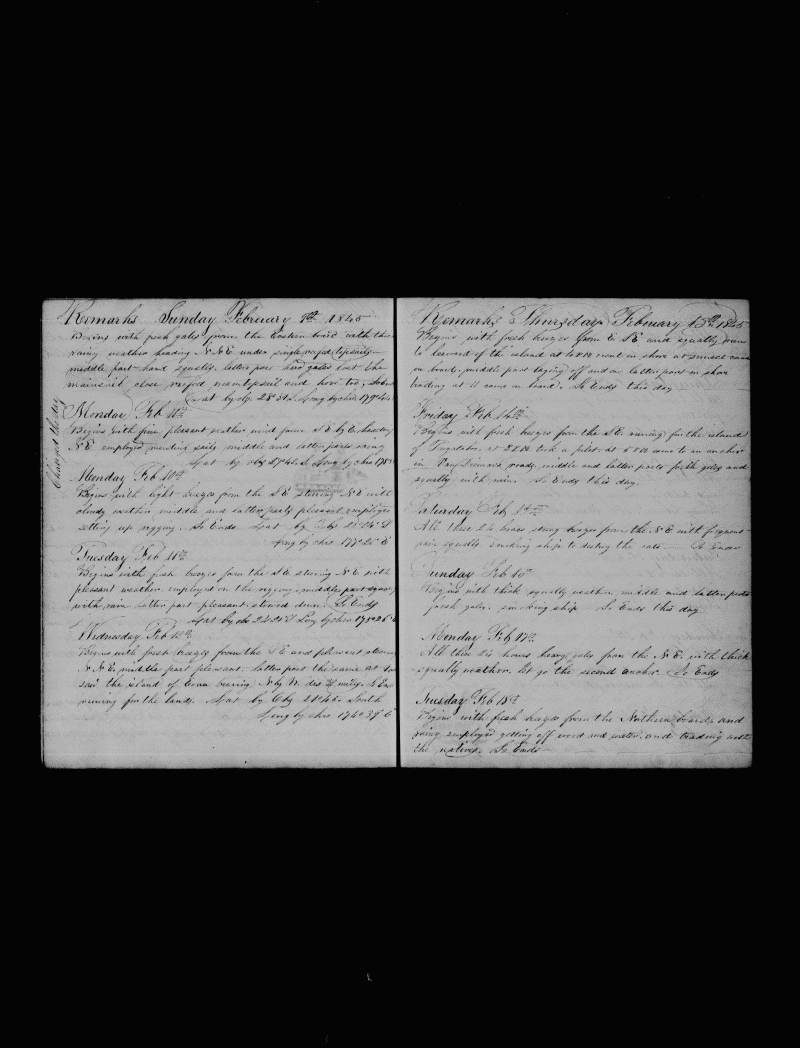 Remarks Sunday February 9th 1845
Begins with fresh gales from the Eastern board with thick
rainy weather heading N N E under single reefed topsails
middle part hard squalls. latter part hard gales
mainsail close reefed maintopsail and hove too, So Ends
Lat by Obs 28° Long by chro 179°44
Changed the day
Monday Feb 10th
Begins with fine pleasant weather wind from S E by E. heading
N E employed mending sails middle and latter parts
Lat by obs 27°42 S Long by chro 178
Monday Feb 10th
Begins with light breezes from the S E steering N E with
cloudy weather middle and latter parts pleasant employed
setting up rigging. So Ends Lat by Obs
Long by chro 177°20 E
Tuesday Feb 11th
Begins with fresh breezes from the S E steering N E with
pleasant weather employed on the rigging, middle part squally
with rain latter part pleasant. stowed down So Ends
Lat by obs Long by chro
Wednesday Feb 12th
Begins with fresh breezes from the S E and pleasant steering
N N E. middle part pleasant. latter part the same at
saw the island of Eoua bearing N by W. dis miles
running for the land. Lat by Obs 21°42 South
Long by chro 174°39 E
Remarks Thursday February 13th 1845
Begins with fresh breezes from to S E and squally down
to leeward of the island at 4 PM went in shore at sunset came
on board, middle part laying off and on latter part in shore
trading at 11 came on board. So Ends this day
Friday Feb 14th
Begins with fresh breezes from the S E. running for the island
of Tongataboo at 2 PM took a pilot. at 5 PM came to an anchor
in Van Diemans roads, middle and latter parts fresh gales and
squally with rain. So Ends this day.
Saturday Feb
All these 24 hours strong breezes from the N E with frequent
rain squalls smoking ship to destroy the rats So Ends
Sunday Feb 16th
Begins with thick squally weather, middle and latter parts
fresh gales. smoking ship So Ends this day
Monday Feb 17th
All these 24 hours heavy gales from the N E. with thick
squally weather. let go the second anchor. So Ends
Tuesday Feb 18th
Begins with fresh breezes from the Northern board and
rainy employed getting off wood and water. and trading with
the natives. So Ends